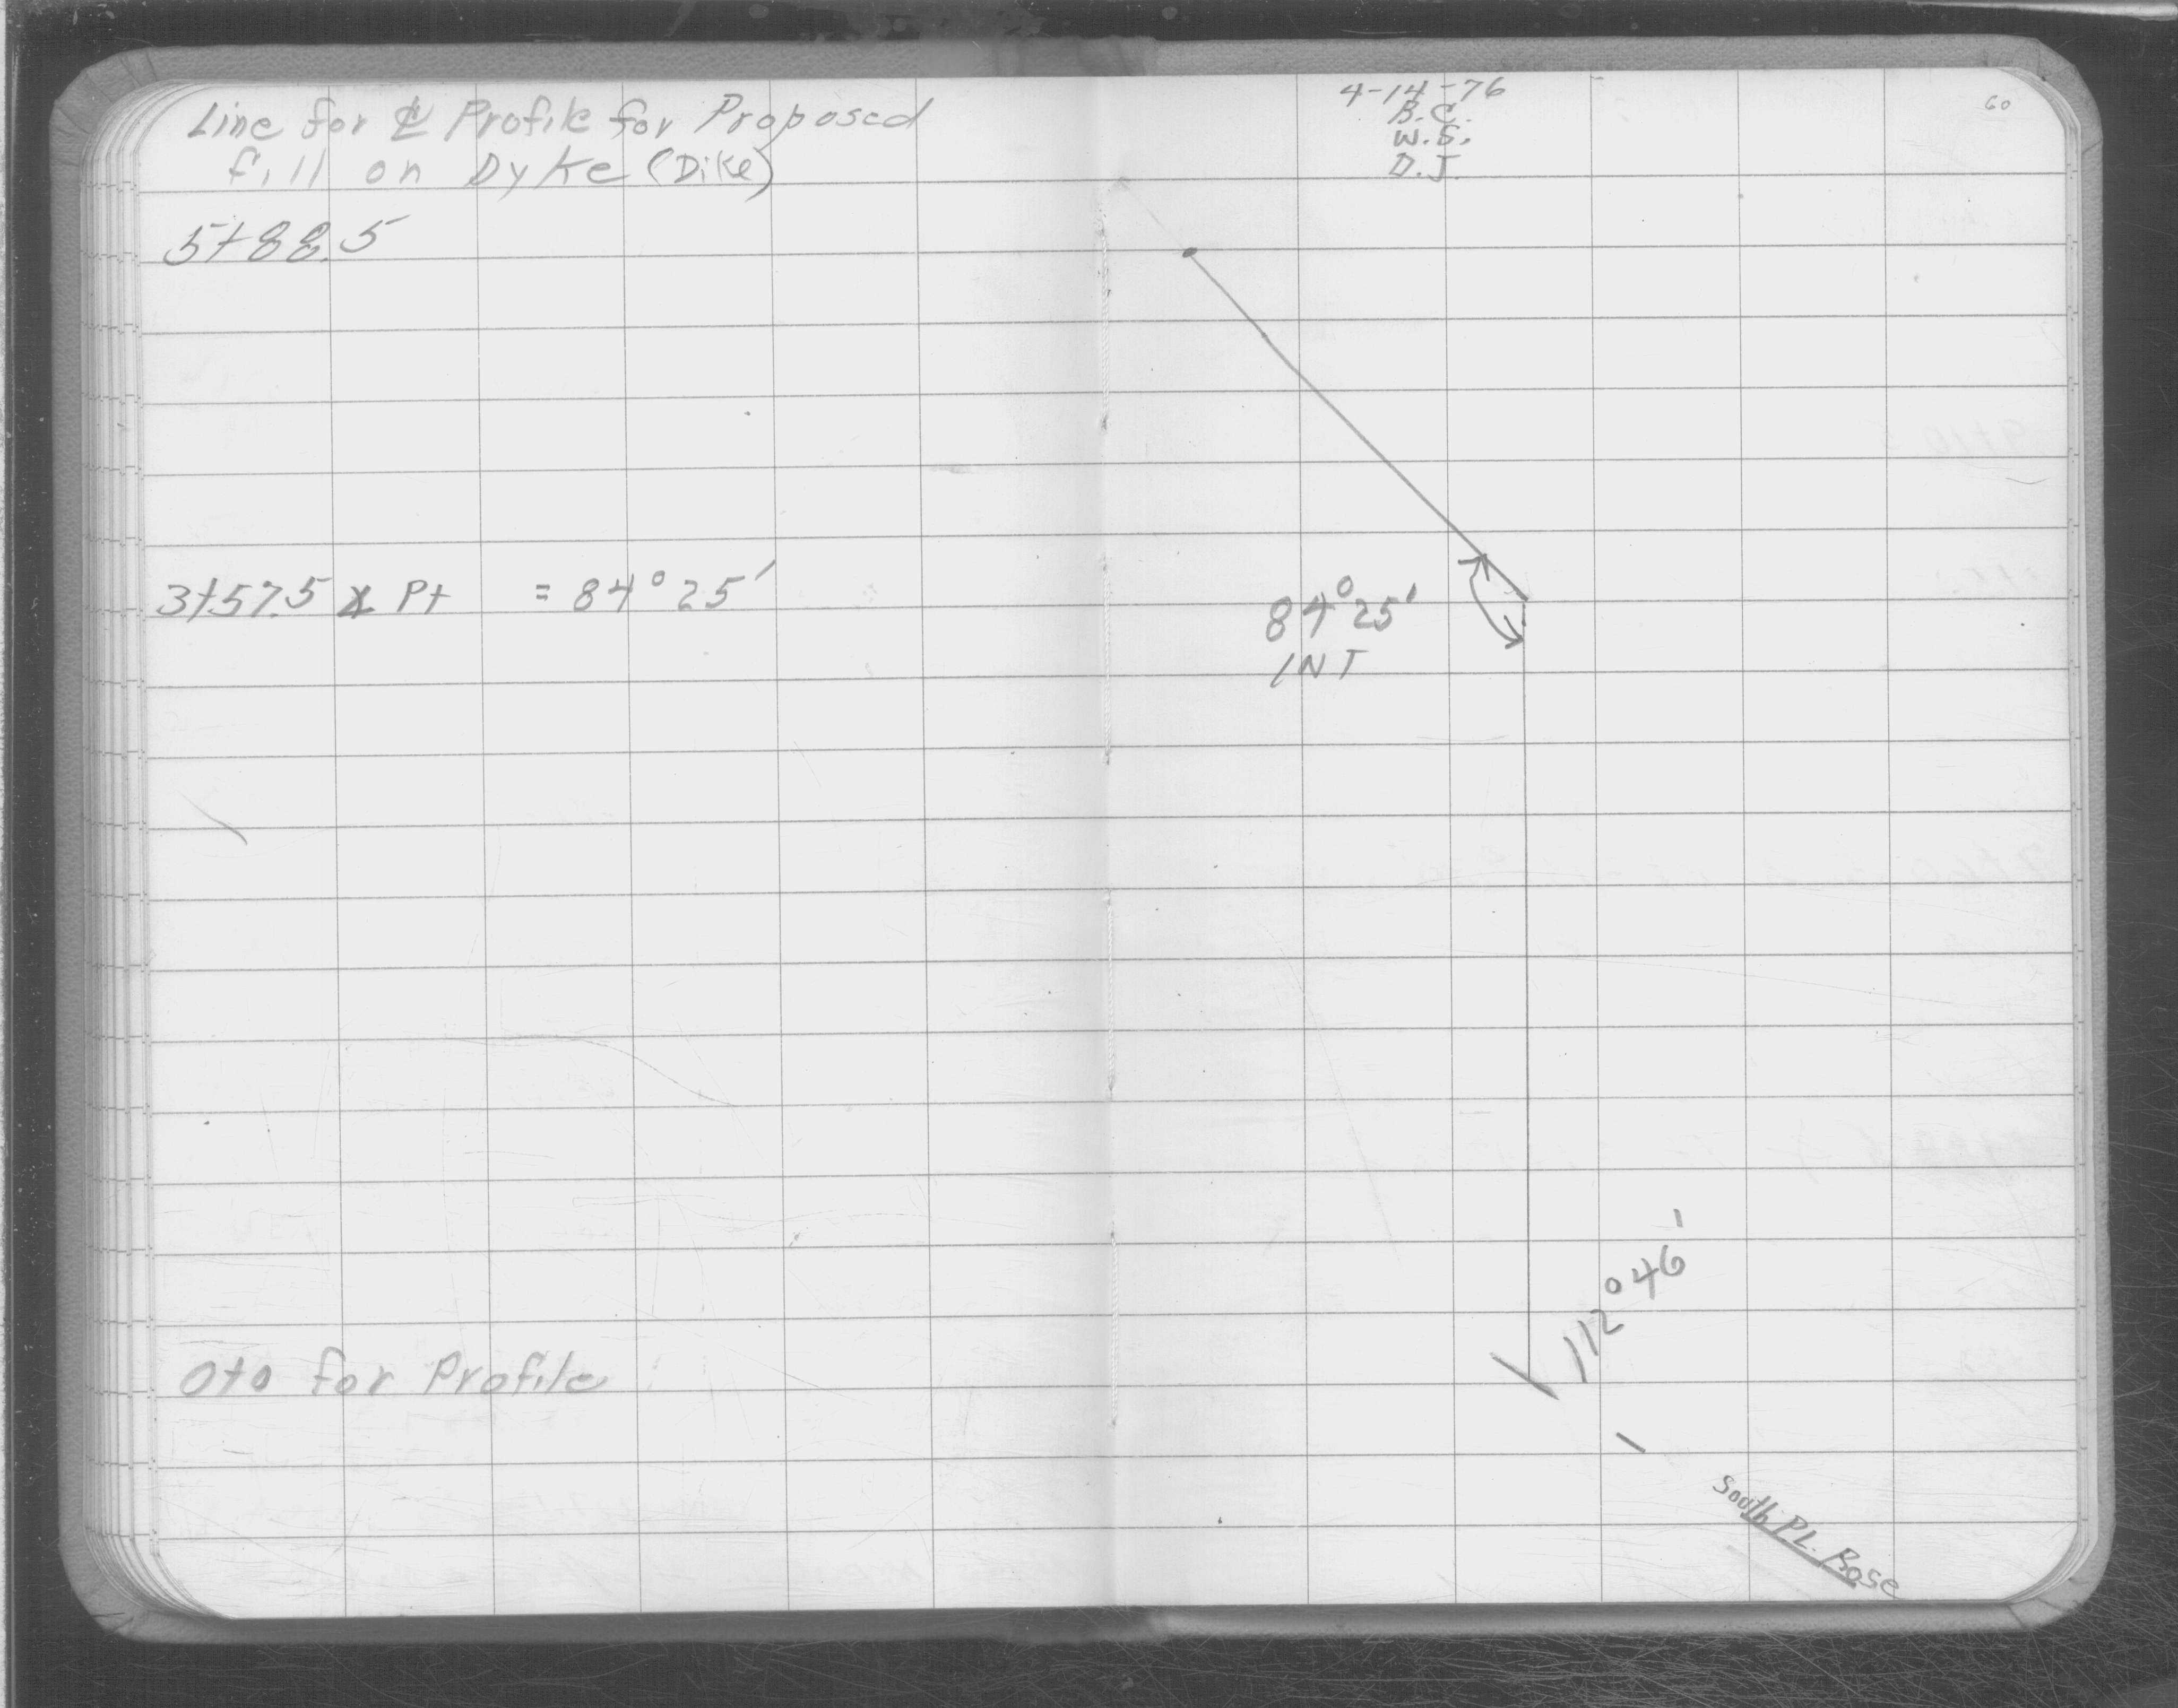 Line for ℄ Profile for Proposed
fill on Dyke (Dike)
5+88.5
3+57.5 ∡ Pt = 84° 25'
0+0 for Profile
4-14-76
B.C.
W.S.
D.J.
60
84° 25'
INT
112° 46'
South PL. Base